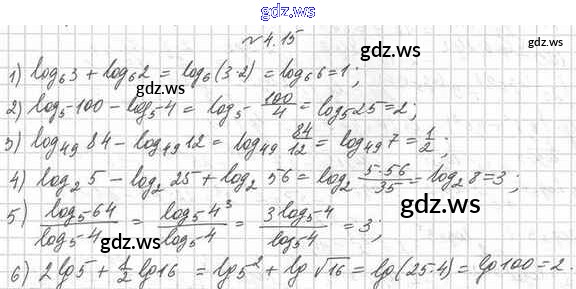 gdz.ws
№ 4.15
gdz.ws
1) log₆3 + log₆2 = log₆(3·2) = log₆6 = 1;
2) log₅100 - log₅4 = log₅ 100/4 = log₅25 = 2;
3) log₄₉84 - log₄₉12 = log₄₉ 84/12 = log₄₉7 = 1/2;
4) log₂5 - log₂25 + log₂56 = log₂ 5·56/35 = log₂8 = 3;
5) log₅64/log₅4 = log₅4³/log₅4 = 3log₅4/log₅4 = 3;
gdz.ws
6) 2lg5 + 1/2 lg16 = lg5² + lg√16 = lg(25·4) = lg100 = 2.
gdz.ws